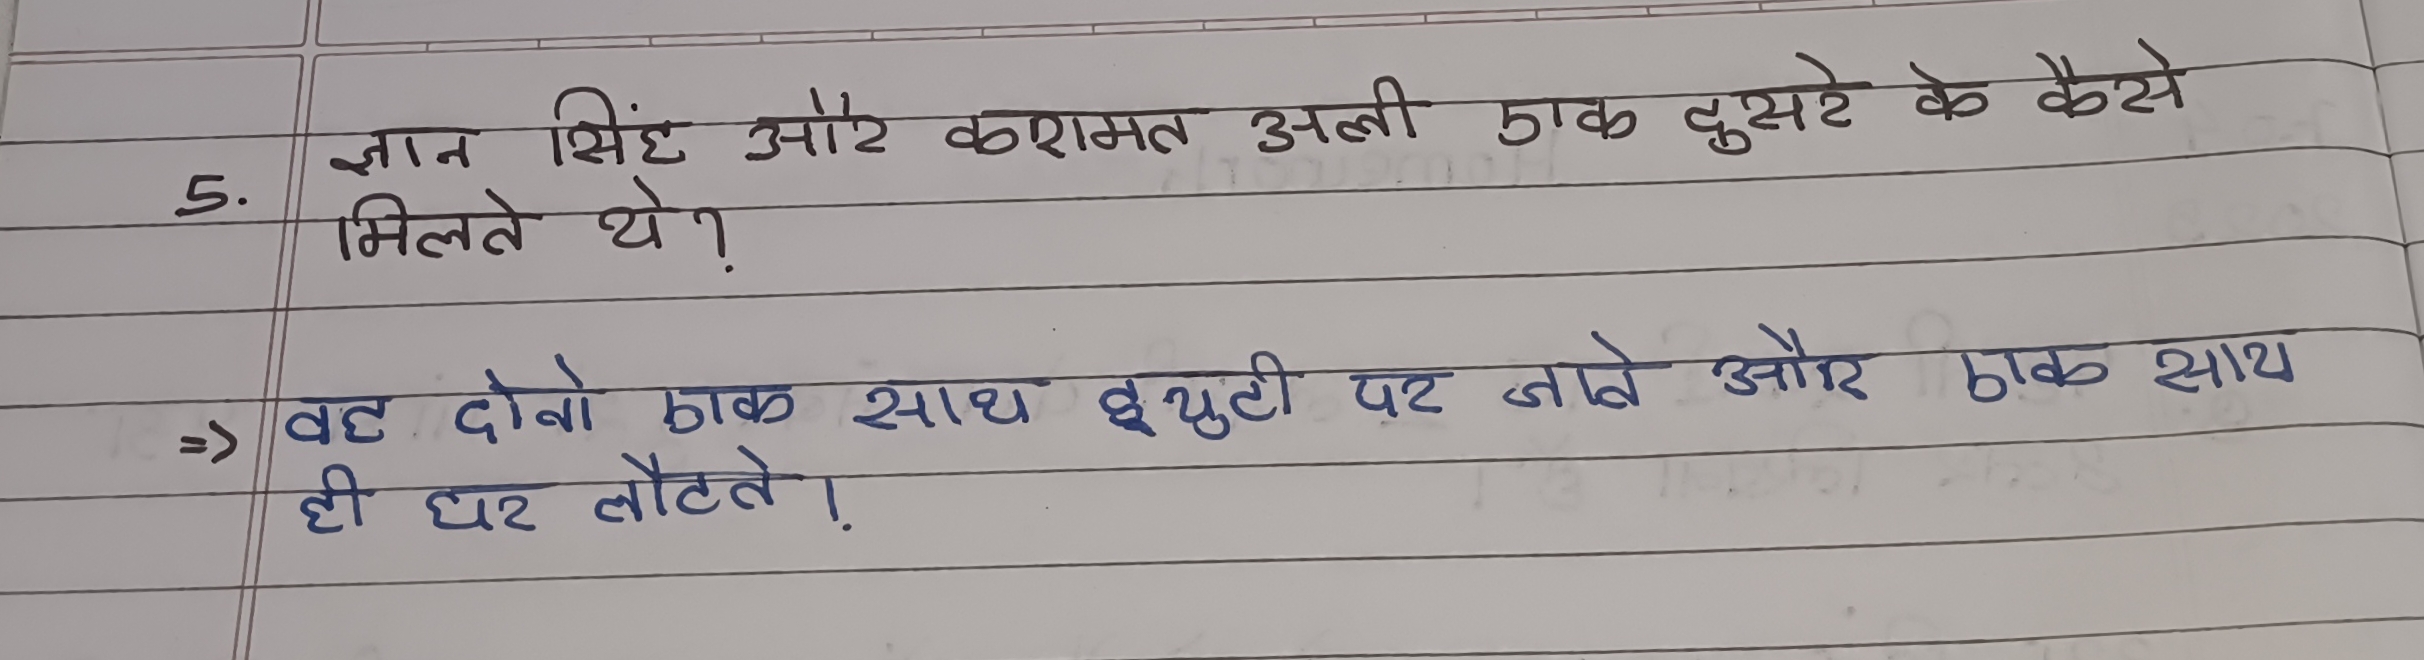 5. ज्ञान सिंह और करामत अली एक दुसरे के कैसे
मिलते थे?
=> वह दोनो एक साथ ड्युटी पर जाते और एक साथ
ही घर लौटते।